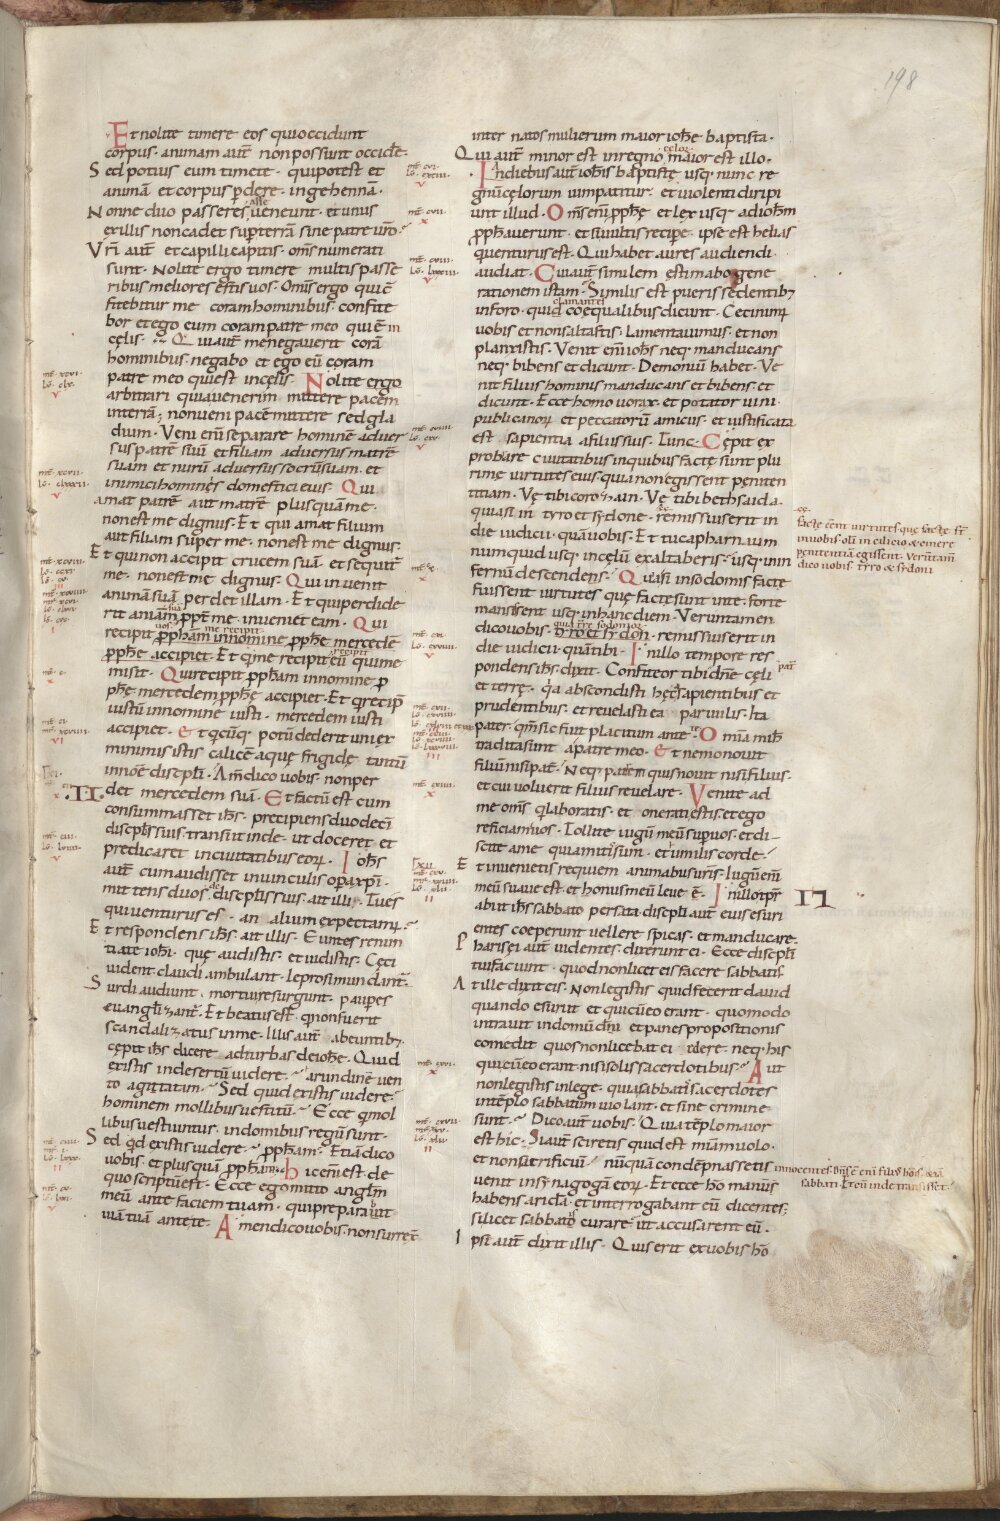 198
Et nolite timere eos qui occidunt
corpus· animam aut̄ non possunt occidē·
Sed potius eum timete· qui potest et
animā et corpus ꝑdere· in gehennā·
Nonne duo passeres asse ueneunt· et unus
ex illis non cadet sup terrā sine patre ur̄o·
Vr̄i aut̄ et capilli capitis· om̄s numerati
sunt· Nolite ergo timere multis passe
ribus meliores estis uos· Om̄s ergo qui c̄
fitebitur me coram hominibus· confite
bor et ego eum coram patre meo qui ē in
cęlis· Qui aut̄ me negauerit corā
hominibus· negabo et ego eū coram
patre meo qui est in cęlis· Nolite ergo
arbitrari quia uenerim mittere pacem
in terrā; non ueni pacē mittere sed gla
dium· Veni eni̅ separare hominē aduer
sus patrē suū et filiam aduersus matrē
suam et nurū aduersus socrū suam· et
inimici hominęs domestici eius· Qui
amat patrē aut matrē plus quam me·
non est me dignus· Et qui amat filium
aut filiam super me· non est me dignus·
Et qui non accipit crucem suā· et sequit̄
me· non est me dignus· Qui inuenit
animā suā perdet illam· Et qui perdide
rit aniām suā ꝓpt̄ me· inueniet eam· Qui
recipit uos· me recipit
ꝓpham in nomine ꝓphę mercedē
ꝓphę accipiet· Et q̄ me recipit· recipit eū qui me
misit· Qui recipit ꝓpham in nomine ꝓ
phę mercedem ꝓphę accipiet· Et q̄ recip̄
iustū in nomine iusti· mercedem iusti
accipiet· Et qcūq· potū dederit uni ex
minimis istis calicē aquę frigidę tantū
in noīe discipli· Am̄ dico uobis· non per
·II· det mercedem suā· Et factū est cum
consummasset ih̄s· precipiens duodecī
disciplis suis· transiit inde· ut doceret et
predicaret in ciuitatibus eorꝝ· Ioh̄s
aut̄ cum audisset in uinculis opa xp̄i·
mittens duos de disciplis suis· ait illi· Tu es
qui uenturus es· an alium expectam;
Et respondens ih̄s· ait illis· Euntes renun
tiate iohi· quę audistis· et uidistis· Cęci
uident· claudi ambulant· leprosi mundant̄
Surdi audiunt· mortui resurgunt· pauꝑes
euangliꝫant̄· Et beatus est· q̄ non fuerit
scandaliꝫatus in me· Illis aut̄ abeuntibꝫ·
cępit ih̄s dicere ad turbas de iohē· Quid
existis in desertū uidere· arundinē uen
to agitatam· Sed quid existis uidere·
hominem mollibus uestitū· Ecce q̄ mol
libus uestiuntur· in domibus regū sunt·
Sed q̄d existis uidere· ꝓpham· Etiā dico
uobis· et plus quā ꝓpham· hic eni̅ est de
quo scriptū est· Ecce ego mitto anglm̄
meū ante faciem tuam· qui preparabit
uiā tuā ante te· Amen dico uobis· non surrex̄
inter natos mulierum maior ioh̄e baptista·
Qui aut̄ minor est in regno cęlor· maior est illo·
In diebus aut̄ ioh̄is baptistę· usq· nunc re
gnū cęlorum uim patitur· et uiolenti diripi
unt illud· Om̄s eni̅ ꝓphę et lex usq· ad ioh̄m
ꝓphauerunt· et si uultis recipe· ipse est helias
qui uenturus est· Qui habet aures audiendi·
audiat· Cui aut̄ similem estimabo gene
rationem istam· Similis est pueris sedentibꝫ
in foro· qui clamantes coęqualibus dicunt· Cecinim;
uobis et non saltastis· Lamentauimus· et non
planxistis· Venit eni̅ ioh̄s neq· manducans
neq· bibens et dicunt· Demoniū habet· Ve
nit filius hominis manducans et bibens· et
dicunt· Ecce homo uorax· et potator uini·
publicanorꝝ et peccatorū amicus· et iustificata
est sapientia a filiis suis· Tunc· Cępit ex
probare ciuitatibus in quibus factę sunt plu
rimę uirtutes eius· quia non egissent peniten
tiam· Vę tibi corozain· Vę tibi bethsaida·
quia si in tyro et sydone· remissius erit in
die iudicii· quā uobis· Et tu capharnaum
numquid usq· in cęlū exaltaberis· usq· in in
fernū descendens· Quia si in sodomis factę
fuissent uirtutes quę factę sunt in te· forte
mansissent usq· in hanc diem· Veruntamen
dico uobis· quia tr̄re sodomor
tyro et sydon· remissius erit in
die iudicii· quā tibi· In illo tempore res
pondens ih̄s· dixit· Confiteor tibi dn̄e pat̄ cęli
et terrę· q̄a abscondisti hęc sapientibus et
prudentibus· et reuelasti ea paruulis· Ita
pater· qm̄ sic fuit placitum ante te· Omnia mih̄
tradita sunt a patre meo· Et nemo nouit
filiū nisi pat̄· Neq· patrem quis nouit nisi filius·
et cui uoluerit filius reuelare· Venite ad
me om̄s q̄ laboratis· et onerati estis· et ego
reficiam uos· Tollite iugū meū sup uos· et di
scite a me· quia mitis sum· et humilis corde·
Et inuenietis requiem animabus ur̄is· Iugū eni̅
meū suaue est· et honus meū leue ē· In illo tpr̄e
II
abiit ih̄s sabbato per sata· discipli aut̄ eius esuri
entes coeperunt uellere spicas· et manducare·
Pharisei aut̄ uidentes· dixerunt ei· Ecce discipli
tui faciunt· quod non licet eis facere sabbatis·
At ille dixit eis· Non legistis quid fecerit dauid
quando esuriit et qui cū eo erant· quomodo
intrauit in domū di̅ et panes propositionis
comedit quos non licebat ei edere· neq· his
qui cū eo erant nisi solis sacerdotibus· Aut
non legistis in lege· quia sabbatis sacerdotes
in tēplo sabbatum uiolant· et sine crimine
sunt· Dico aut̄ uobis· Quia tēplo maior
est hic· Si aut̄ sciretis quid est· mīam uolo·
et non sacrificiū· nūnquā condēpnassetis innocentes· Dn̄s ē eni̅ filiꝰ hōis
sabbati· Et cū inde transisset·
uenit in synagogam eorꝝ· Et ecce hō manūs
habens aridā· et interrogabant eū dicentes;
si licet sabbatis curare· ut accusarent eū·
Ipse aut̄ dixit illis· Quis erit ex uobis hō
factę eēnt uirtutes quę factę st̄
in uobis· oli̅ in cilicio et cinere
penitentiā egissent· Verūtam̄
dico uobis tyro et sydoni